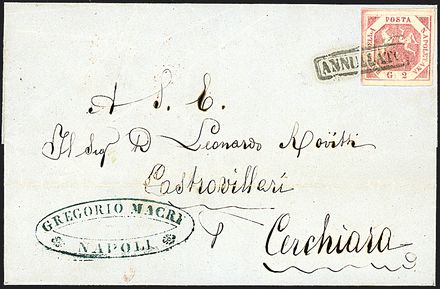 POSTA NAPOLETANA
G. 2
ANNULLATO
A S. E.
Il Sig D Leonardo
Castrovillari
p Cerchiara
GREGORIO MACRI
NAPOLI